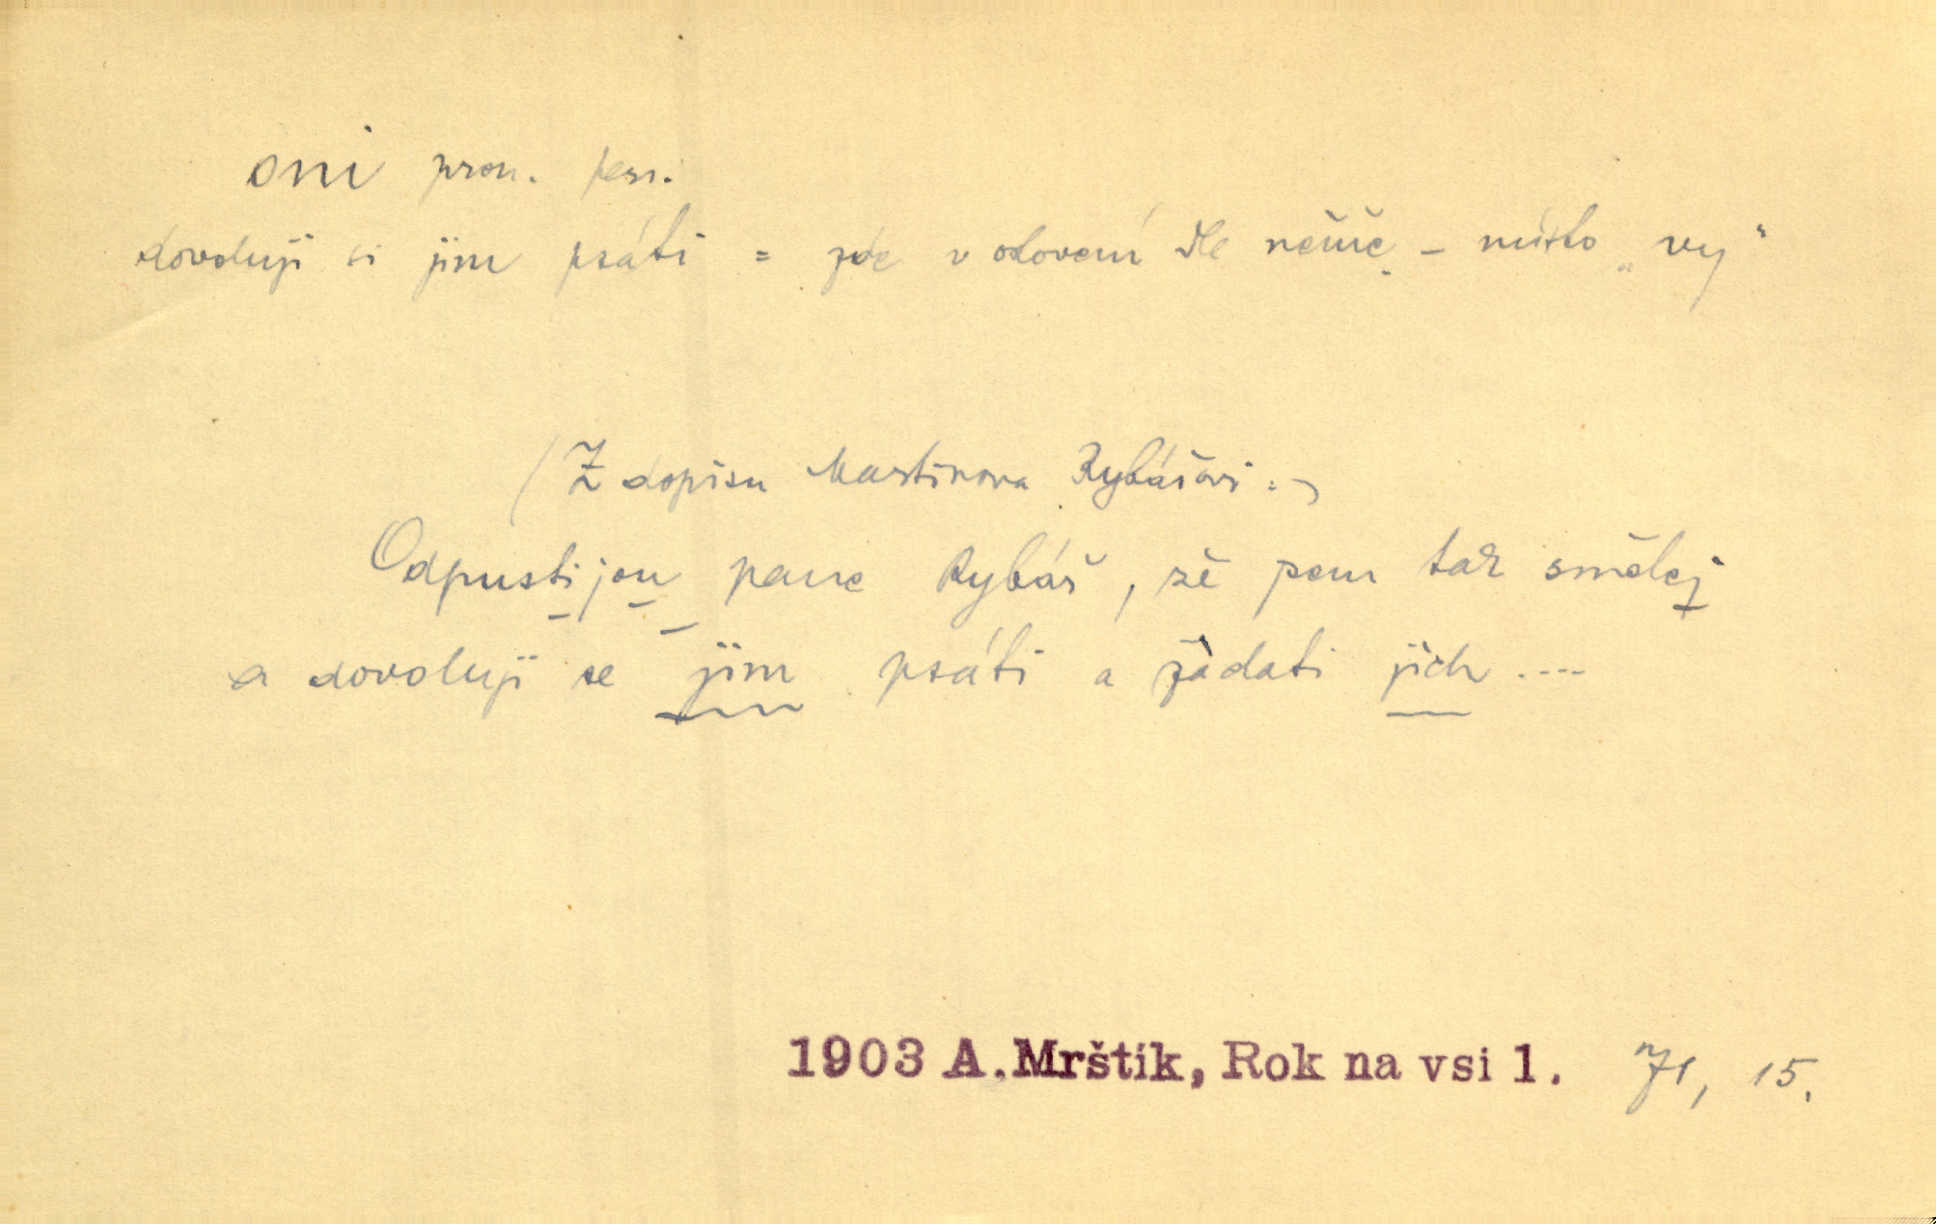 oni pron. pers.
dovoluji si jim psáti = zde v oslovení dle němč. – místo „vy“
(Z dopisu Martinova Rybášovi:)
Odpustijou pane Rybáš, že sem tak smělej
a dovoluji se jim psáti a žádati jich ....
1903 A. Mrštík, Rok na vsi 1. 71, 15.